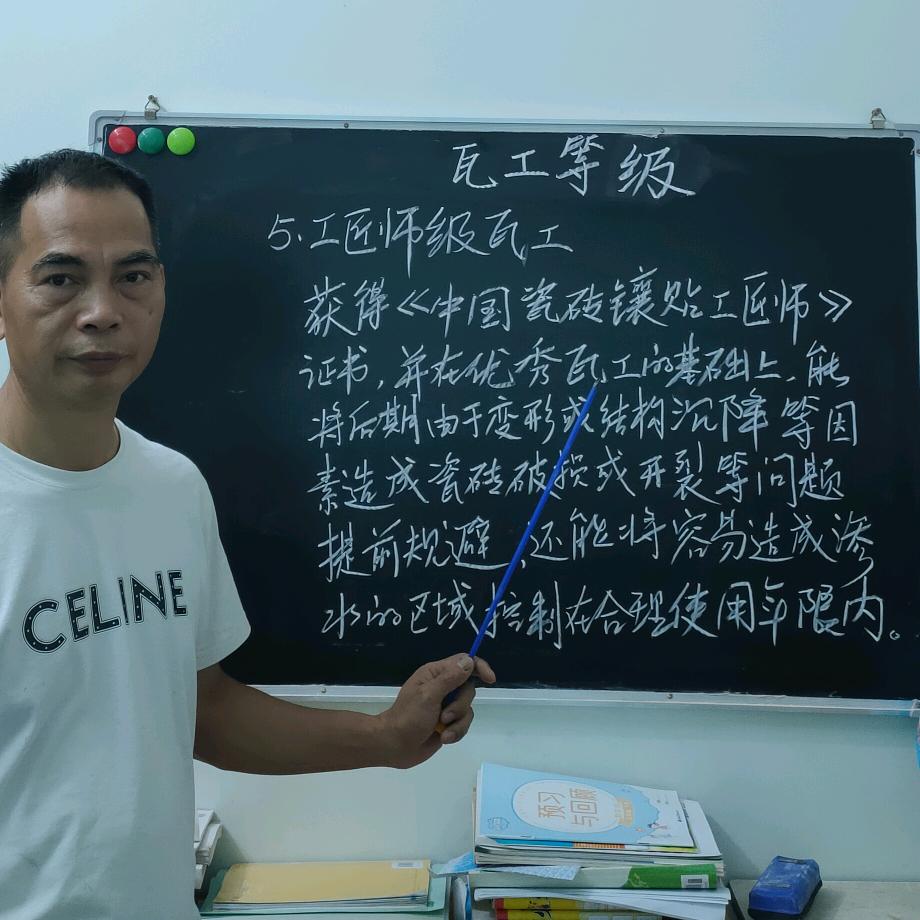 瓦工等级
5.工匠师级瓦工
获得《中国瓷砖镶贴工匠师》
证书,并在优秀瓦工的基础上,能
将后期由于变形或结构沉降等因
素造成瓷砖破损或开裂等问题
提前规避,还能将容易造成渗
水的区域控制在合理使用年限内。
CELINE
预习
与回顾